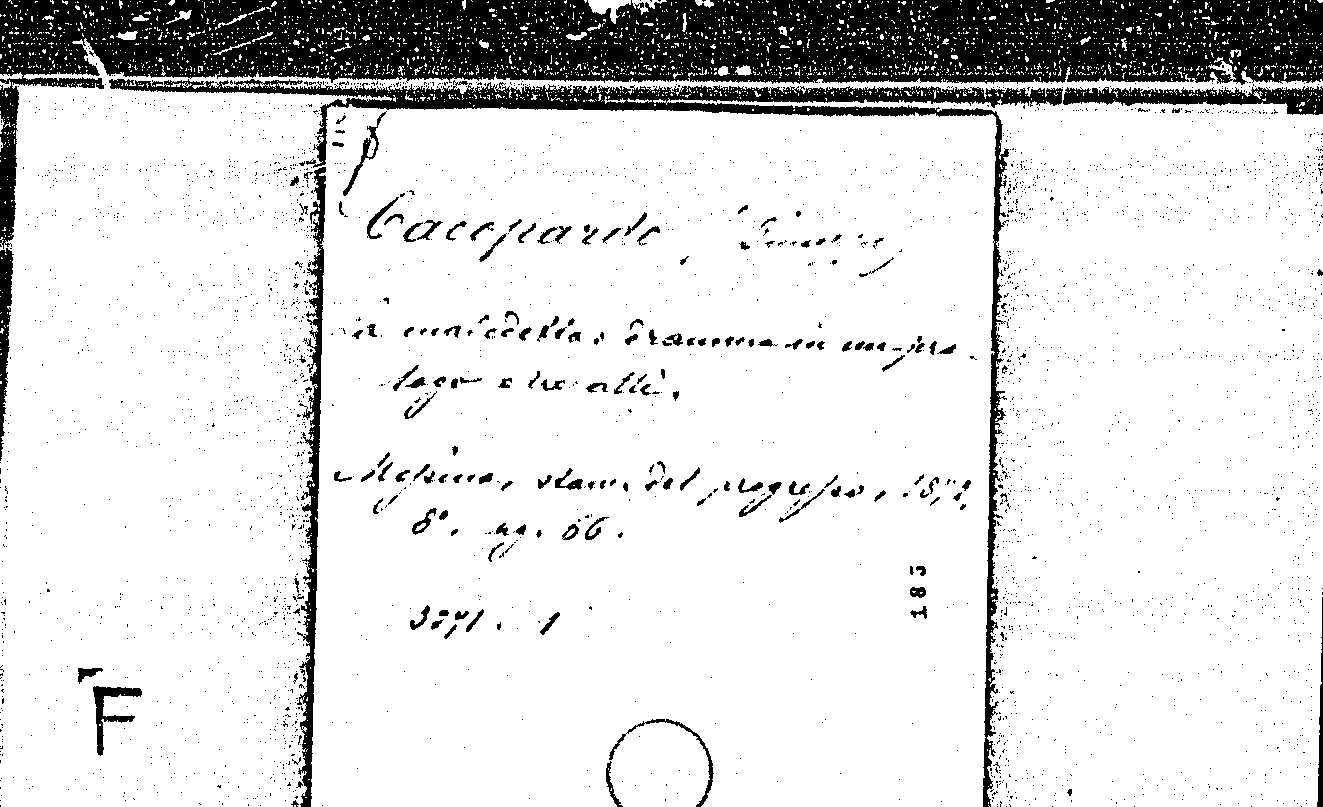 Cacopardo, (Giuseppe)
La maledetta, dramma in un pro-
logo e tre atti.
Messina, stam. del progresso, 1872,
8°. pg. 56.
3271. 1
185
F